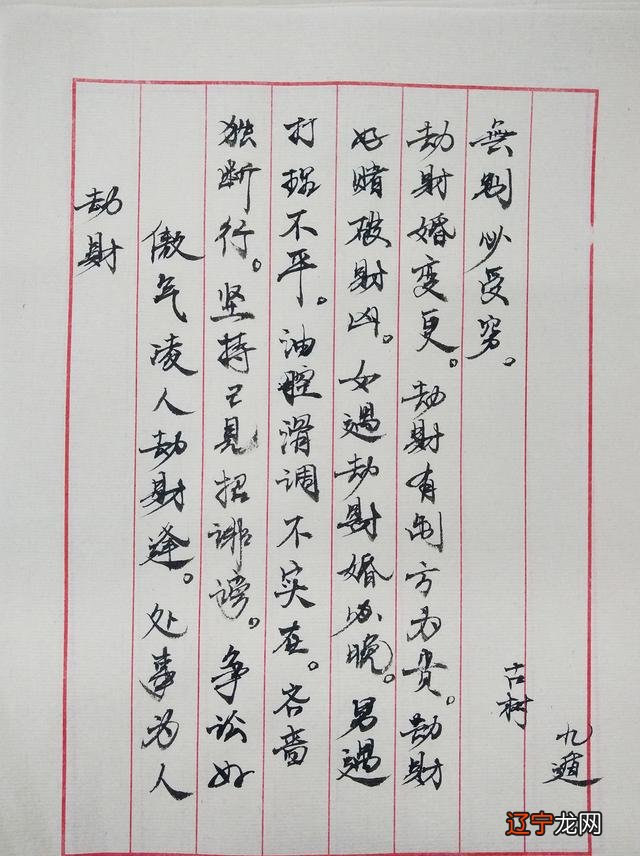 劫財
傲气凌人劫財逢。处事为人
独断行。坚持己見招诽谤。争讼好
打不平。油腔滑调不实在。吝啬
好赌破財凶。女遇劫財婚必晚。男遇
劫財婚变更。劫財有制方为贵。劫財
無制必受穷。
古树
九遁
辽宁龙网